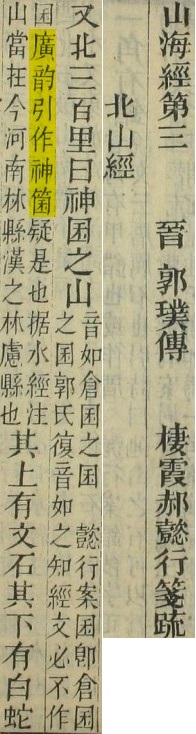 山海經第三　晉　郭璞傳　棲霞郝懿行箋疏
北山經
又北三百里曰神囷之山
音如倉囷之囷　懿行案囷卽倉囷
之囷郭氏復音如之知經文必不作
囷廣韵引作神箘疑是也据水經注
山當在今河南林縣漢之林慮縣也
其上有文石其下有白蛇